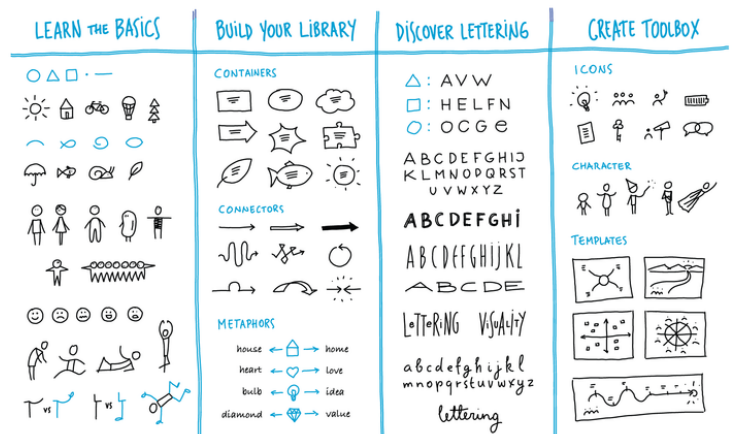 LEARN THE BASICS
VS
VS
BUILD YOUR LIBRARY
CONTAINERS
CONNECTORS
METAPHORS
house home
heart love
bulb idea
diamond value
DISCOVER LETTERING
: AVW
: HELFN
: OCGe
ABCDEFGHIJ
KLMNOPQRST
UVWXYZ
ABCDEFGHI
ABCDEFGHIJKL
ABCDE
LETTERING VISUALITY
abcdefghijkl
mnopqrstuvwxyz
lettering
CREATE TOOLBOX
ICONS
CHARACTER
TEMPLATES